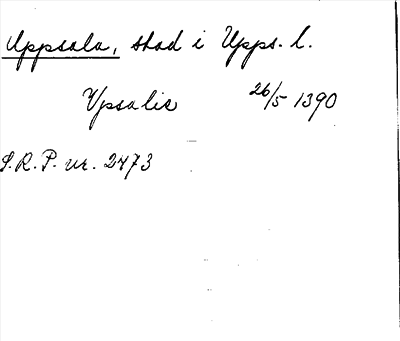 Uppsala, stad i Upps. l.
Vpsalie 26/5 1390
S.R.P. nr. 2473